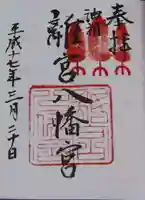 奉拝
離宮八幡宮
平成十七年三月二十日